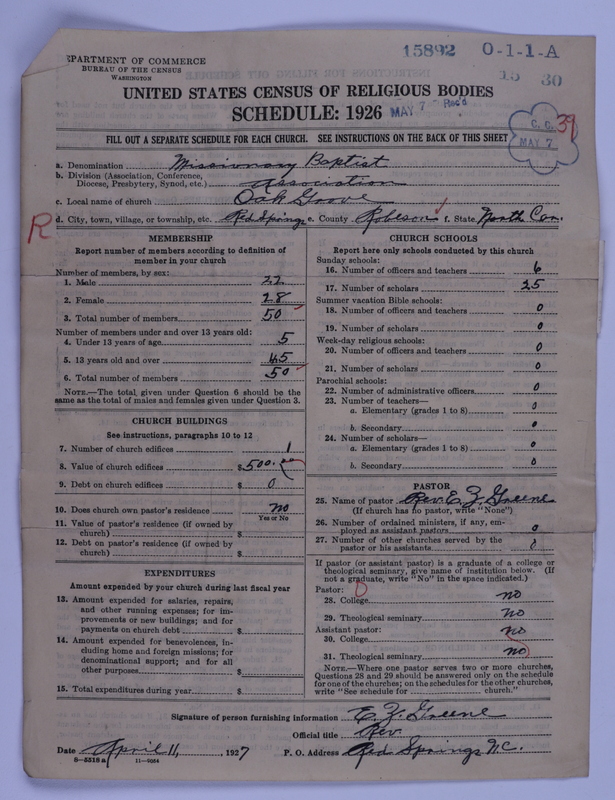 DEPARTMENT OF COMMERCE
BUREAU OF THE CENSUS
WASHINGTON
15892 0-1-1-A
15 30
UNITED STATES CENSUS OF RELIGIOUS BODIES
SCHEDULE: 1926
MAY 7 Rec'd
C. C. 39
MAY 7
FILL OUT A SEPARATE SCHEDULE FOR EACH CHURCH. SEE INSTRUCTIONS ON THE BACK OF THIS SHEET
a. Denomination Missionary Baptist
b. Division (Association, Conference,
Diocese, Presbytery, Synod, etc.) Association
c. Local name of church Oak Grove
R d. City, town, village, or township, etc. Red Springs e. County Robeson f. State North Car.
MEMBERSHIP
Report number of members according to definition of
member in your church
Number of members, by sex:
1. Male 22
2. Female 28
3. Total number of members 50
Number of members under and over 13 years old:
4. Under 13 years of age 5
5. 13 years old and over 45
6. Total number of members 50
NOTE.—The total given under Question 6 should be the
same as the total of males and females given under Question 3.
CHURCH BUILDINGS
See instructions, paragraphs 10 to 12
7. Number of church edifices 1
8. Value of church edifices $ 500.00
9. Debt on church edifices $ 0
10. Does church own pastor's residence no
Yes or No
11. Value of pastor's residence (if owned by
church) $
12. Debt on pastor's residence (if owned by
church) $
EXPENDITURES
Amount expended by your church during last fiscal year
13. Amount expended for salaries, repairs,
and other running expenses; for im-
provements or new buildings; and for
payments on church debt $
14. Amount expended for benevolences, in-
cluding home and foreign missions; for
denominational support; and for all
other purposes $
15. Total expenditures during year $
CHURCH SCHOOLS
Report here only schools conducted by this church
Sunday schools:
16. Number of officers and teachers 6
17. Number of scholars 25
Summer vacation Bible schools:
18. Number of officers and teachers 0
19. Number of scholars 0
Week-day religious schools:
20. Number of officers and teachers 0
21. Number of scholars 0
Parochial schools:
22. Number of administrative officers 0
23. Number of teachers—
a. Elementary (grades 1 to 8) 0
b. Secondary 0
24. Number of scholars—
a. Elementary (grades 1 to 8) 0
b. Secondary 0
PASTOR
25. Name of pastor Rev. E. Z. Greene
(If church has no pastor, write "None")
26. Number of ordained ministers, if any, em-
ployed as assistant pastors 0
27. Number of other churches served by the
pastor or his assistants
If pastor (or assistant pastor) is a graduate of a college or
theological seminary, give name of institution below. (If
not a graduate, write "No" in the space indicated.)
Pastor: 0
28. College no
29. Theological seminary no
Assistant pastor:
30. College no
31. Theological seminary no
NOTE.—Where one pastor serves two or more churches,
Questions 28 and 29 should be answered only on the schedule
for one of the churches; on the schedules for the other churches,
write "See schedule for church."
Signature of person furnishing information E. Z. Greene
Official title Rev.
Date April 11, 1927 P. O. Address Red Springs N.C.
8—5318a 11—9064